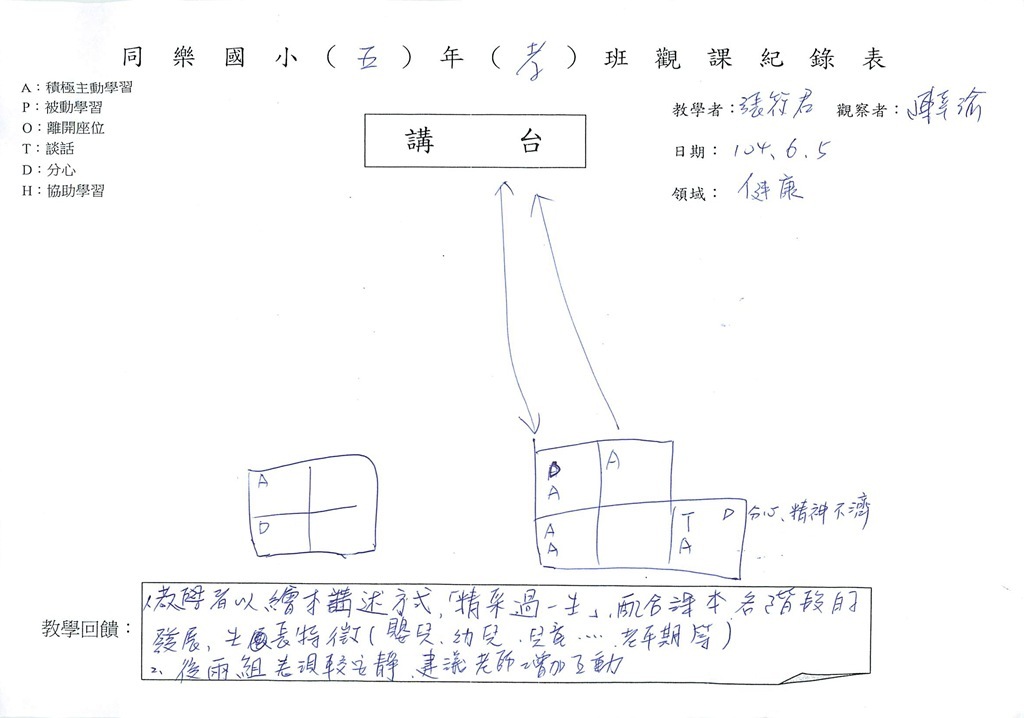 同樂國小（五）年（孝）班觀課紀錄表
A：積極主動學習
P：被動學習
O：離開座位
T：談話
D：分心
H：協助學習
教學者：張筱君 觀察者：
日期：104.6.5
領域：健康
講台
A
D
D
A
A
A
A
T D
A
分心、精神不濟
教學回饋：
1.教學者以繪本講述方式,「精采過一生」,配合課本各階段的
發展,生長特徵(嬰兒、幼兒、兒童....老年期等)
2、後兩組表現較安靜,建議老師增加互動